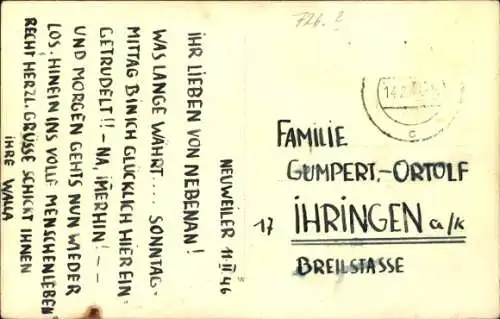 NEUWEILER 11. II 46
IHR LIEBEN VON NEBENAN!
WAS LANGE WÄHRT.... SONNTAG-
MITTAG BIN ICH GLÜCKLICH HIER EIN-
GETRUDELT!! - NA, IMERHIN! - -
UND MORGEN GEHTS NUN WIEDER
LOS. HINEIN INS VOLLE MENSCHENLEBEN
RECHT HERZL. GRÜSSE SCHICKT IHNEN
IHRE WALLA
726.
FAMILIE
GUMPERT.-ORTOLF
17 IHRINGEN a/K
BREILSTASSE